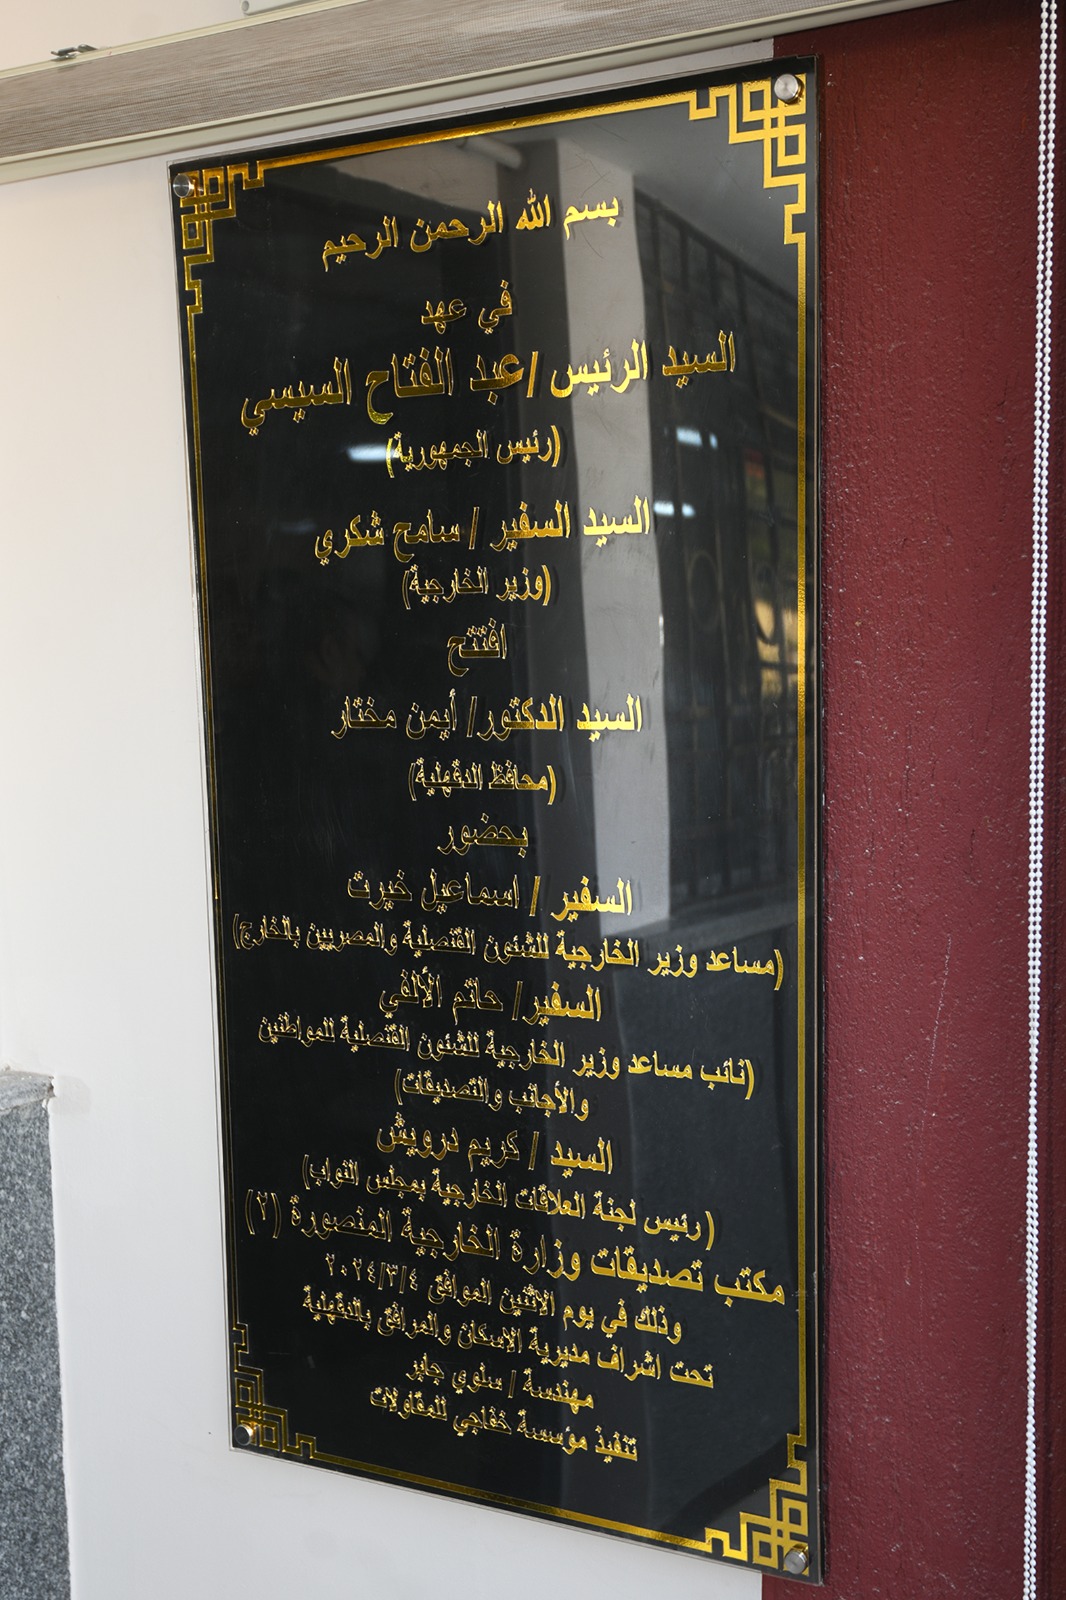 بسم الله الرحمن الرحيم
في عهد
السيد الرئيس /عبد الفتاح السيسي
(رئيس الجمهورية)
السيد السفير / سامح شكري
(وزير الخارجية)
افتتح
السيد الدكتور/ أيمن مختار
(محافظ الدقهلية)
بحضور
السفير / اسماعيل خيرت
(مساعد وزير الخارجية للشئون القنصلية والمصريين بالخارج)
السفير/ حاتم الألفي
(نائب مساعد وزير الخارجية للشئون القنصلية للمواطنين
والأجانب والتصديقات)
السيد / كريم درويش
(رئيس لجنة العلاقات الخارجية بمجلس النواب)
مكتب تصديقات وزارة الخارجية المنصورة (٢)
وذلك في يوم الاثنين الموافق ٢٠٢٤/٣/٤
تحت اشراف مديرية الاسكان والمرافق بالدقهلية
مهندسة / سلوي جابر
تنفيذ مؤسسة خفاجي للمقاولات